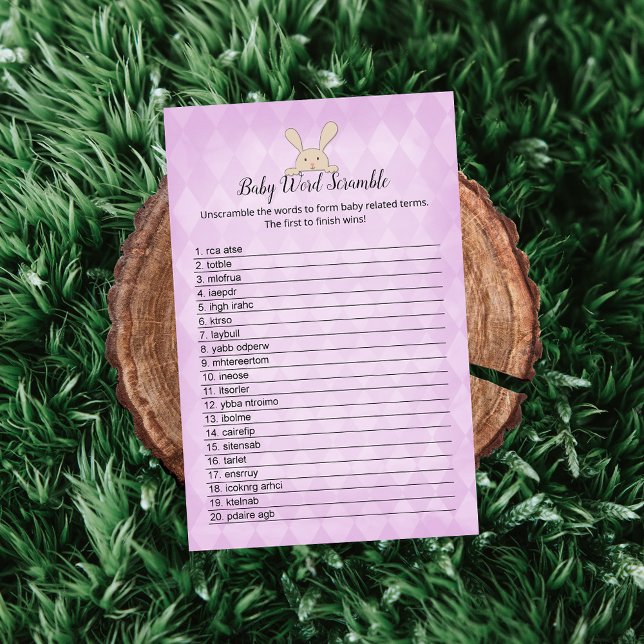 Baby Word Scramble
Unscramble the words to form baby related terms.
The first to finish wins!
1. rca atse
2. totble
3. mlofrua
4. iaepdr
5. ihgh irahc
6. ktrso
7. laybuil
8. yabb odperw
9. mhtereertom
10. ineose
11. ltsorler
12. ybba ntroimo
13. ibolme
14. cairefip
15. sitensab
16. tarlet
17. ensrruy
18. icoknrg arhci
19. ktelnab
20. pdaire agb